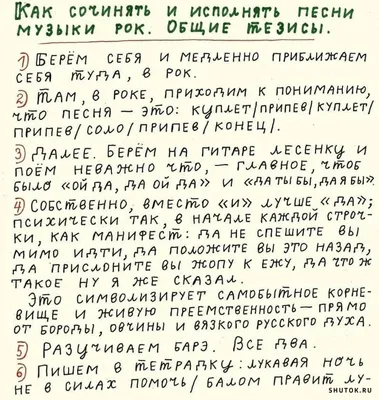 Как сочинять и исполнять песни
музыки рок. Общие тезисы.
1) Берём себя и медленно приближаем
себя туда, в рок.
2) Там, в роке, приходим к пониманию,
что песня — это: куплет/припев/куплет/
припев/соло/припев/конец/.
3) Далее. Берём на гитаре лесенку и
поём неважно что, — главное, чтоб
было «ой да, да ой да» и «да ты бы, да я бы».
4) Собственно, вместо «и» лучше „да";
психически так, в начале каждой строч-
ки, как манифест: да не спешите вы
мимо идти, да положите вы это назад,
да прислоните вы жопу к ежу, да что ж
такое ну я же сказал.
Это символизирует самобытное корне-
вище и живую преемственность — прямо
от бороды, овчины и вязкого русского духа.
5) Разучиваем барэ. Все два.
6) Пишем в тетрадку: лукавая ночь
не в силах помочь/ балом правит лу-
SHUTOK.RU